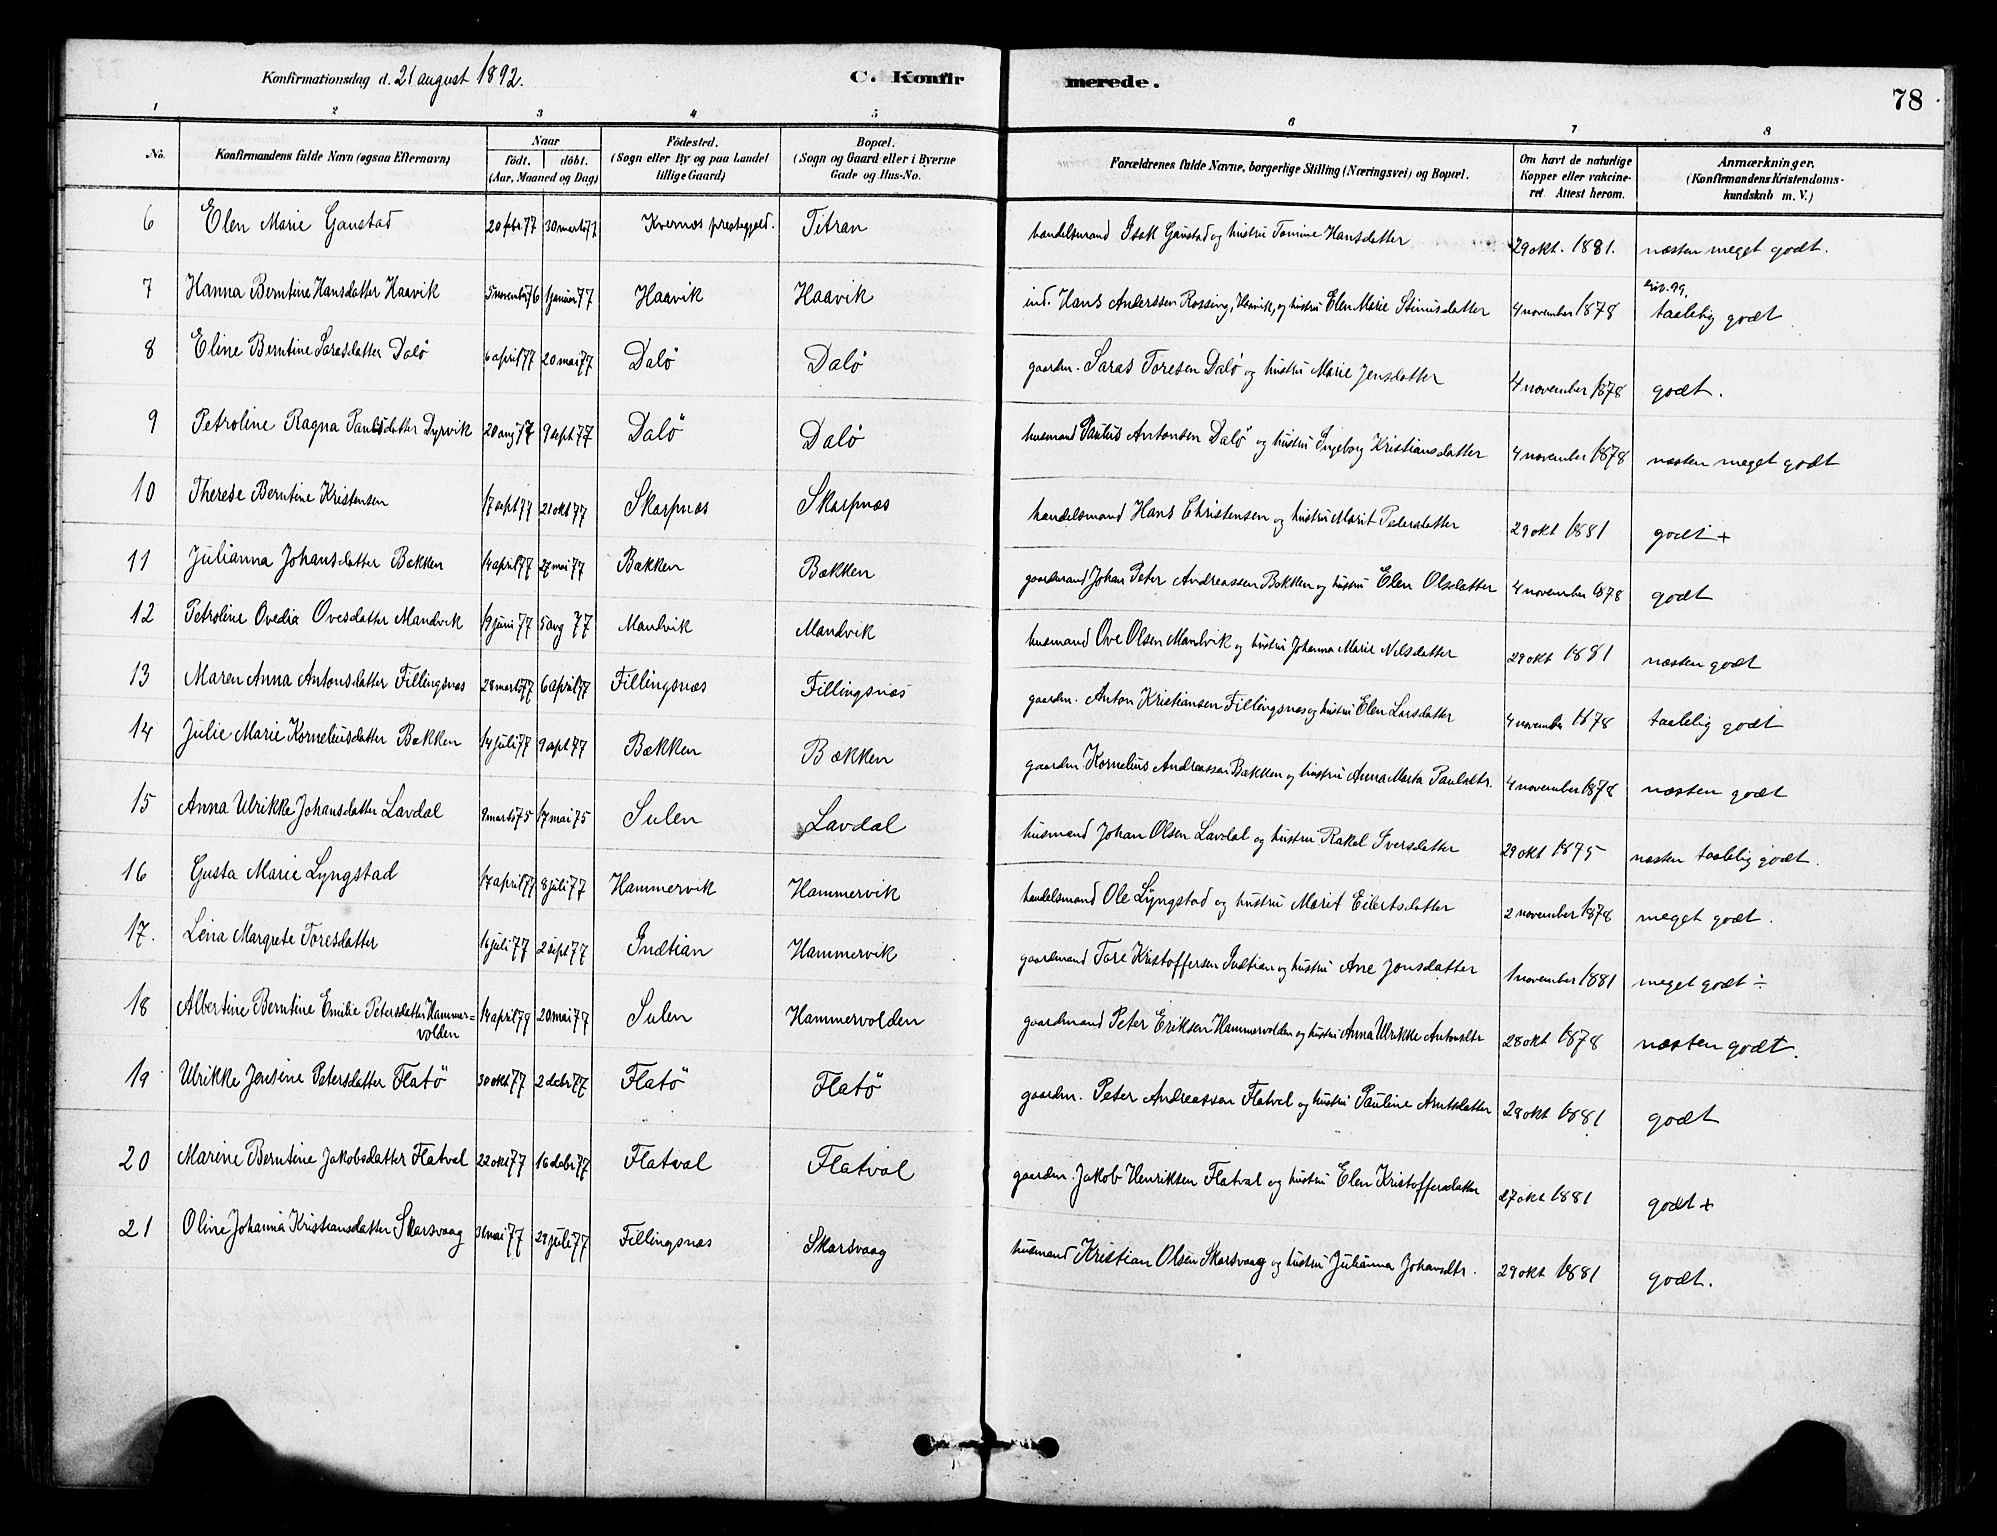 Konfirmationsdag d. 21 august 1892.
C. Konfirmerede.
78
1 2 3 4 5 6 7 8
No. Konfirmandens fulde Navn (ogsaa Efternavn) Naar födt. döbt. (Aar, Maaned og Dag) Födested. (Sogn eller By og paa Landet tillige Gaard) Bopæl. (Sogn og Gaard eller i Byerne Gade og Hus-No. Forældrenes fulde Navne, borgerlige Stilling (Næringsvei) og Bopæl. Om havt de naturlige Kopper eller vakcineret Attest herom. Anmærkninger. (Konfirmandens Kristendomskundskab m. V.)
6 Elen Marie Gaustad 20 febr 77 30 marts 77 Kvernes prestegjeld. Titran handelsmand Isak Gaustad og hustru Tomine Hansdatter 29 okt. 1881. næsten meget godt.
7 Hanna Berntine Hansdatter Haavik 5 november 76 1 januar 77 Haavik Haavik ind. Hans Anderssen Rossing, Haavik, og hustru Elen Marie Stinusdatter 4 november 1878 taalelig godt
8 Eline Berntine Sarasdatter Dalö 6 april 77 20 mai 77 Dalö Dalö gaardm. Saras Toresen Dalö og hustru Marie Jensdatter 4 november 1878 godt.
9 Petroline Ragna Paulsdatter Dyrvik 20 aug 77 9 sept 77 Dalö Dalö husmand Paulus Antonsen Dalö og hustru Ingeborg Kristiansdatter 4 november 1878 næsten meget godt
10 Therese Berntine Kristensen 17 sept 77 21 okt 77 Skarpnæs Skarpnæs handelsmand Hans Christensen og hustru Marit Pedersdatter 29 okt 1881 godt +
11 Julianna Johansdatter Bækken 14 april 77 27 mai 77 Bækken Bækken gaardmand Johan Peter Andreassen Bækken og hustru Elen Olsdatter 4 november 1878 godt
12 Petroline Ovedia Ovesdatter Mandvik 19 juni 77 5 aug 77 Mandvik Mandvik husmand Ove Olsen Mandvik og hustru Johanna Marie Nilsdatter 29 okt 1881 næsten godt
13 Maren Anna Antonsdatter Fillingsnæs 28 marts 77 6 april 77 Fillingsnæs Fillingsnæs gaardm. Anton Kristiansen Fillingsnæs og hustru Elen Larsdatter 4 november 1878 taalelig godt
14 Julie Marie Korneliusdatter Bækken 14 juli 77 9 sept 77 Bækken Bækken gaardm. Kornelius Andreassen Bækken og hustru Anna Marta Paulsdtr. 4 november 1878 næsten godt
15 Anna Ulrikke Johansdatter Lavdal 9 marts 75 17 mai 75 Sulen Lavdal husmand Johan Olsen Lavdal og hustru Rakel Iversdatter 29 okt 1875 næsten taalelig godt.
16 Gusta Marie Lyngstad 17 april 77 8 juli 77 Hammervik Hammervik handelsmand Ole Lyngstad og hustru Marit Eilertsdatter 2 november 1878 meget godt.
17. Lena Margrete Toresdatter 16 juli 77 2 sept 77 Indtian Hammervik gaardmand Tore Kristoffersen Indtian og hustru Ane Jonsdatter 1 november 1881 meget godt ÷
18 Albertine Berntine Emilie Petersdatter Hammervolden 14 april 77 20 mai 77 Sulen Hammervolden gaardmand Peter Eriksen Hammervolden og hustru Anna Ulrikke Antonsdtr 28 okt 1878 næsten godt.
19 Ulrikke Jensine Petersdatter Flatö 30 okt 77 2 debr 77 Flatö Flatö gaardm. Peter Andreassen Flatval og hustru Pauline Arntsdatter 28 okt 1881 godt
20 Marine Berntine Jakobsdatter Flatval 22 okt 77 16 debr 77 Flatval Flatval gaardm. Jakob Henriksen Flatval og hustru Elen Kristoffersdatter 27 okt 1881 godt +
21 Oline Johanna Kristiansdatter Skarsvaag 31 mai 77 29 juli 77 Fillingsnæs Skarsvaag husmand Kristian Olsen Skarsvaag og hustru Julianna Johansdtr. 29 okt 1881 godt.